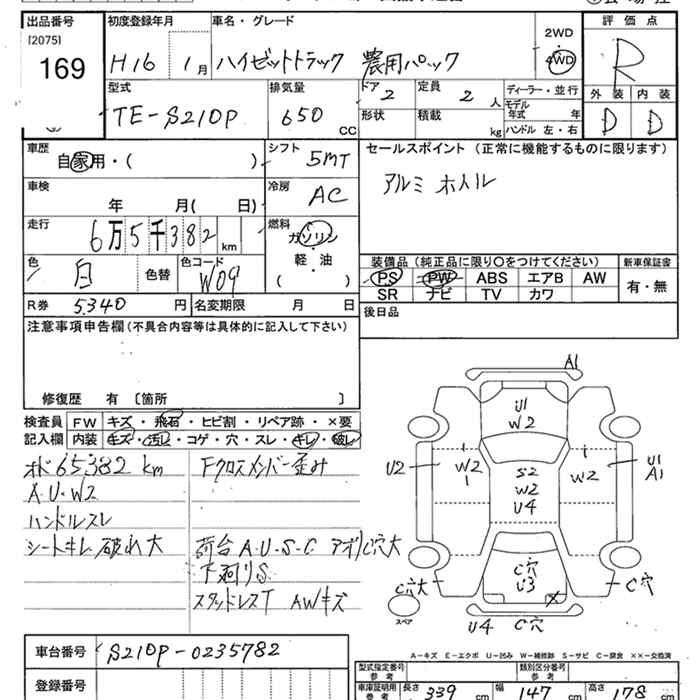 出品番号
[2075]
169
初度登録年月
H16 1月
車名・グレード
ハイゼットトラック 農用パック
2WD
4WD
評価点
R
型式
TE-S210P
排気量
650 CC
ドア 2
定員 2 人
形状
積載 kg
ディーラー・並行
モデル年式 年
ハンドル 左・右
外装 内装
D D
車歴
自家用・( )
シフト 5MT
セールスポイント (正常に機能するものに限ります)
アルミホイル
車検
年 月( 日)
冷房 AC
走行
6万5千382km
燃料
ガソリン
軽・油
( )
色 白 色替
色コード W09
装備品 (純正品に限り○をつけてください)
PS PW ABS エアB AW
SR ナビ TV カワ
新車保証書
有・無
R券 5.340 円
名変期限 月 日
後日品
注意事項申告欄 (不具合内容等は具体的に記入して下さい)
修復歴 有 〔箇所 〕
検査員記入欄
FW キズ・飛石・ヒビ割・リペア跡・×要
内装 キズ・汚レ・コゲ・穴・スレ・キレ・破レ
オド65382km
A・U・W2
ハンドルスレ
シートキレ破れ大
Fクロスメンバー歪み
荷台A・U・S・C アオリC穴大
下廻りS
スタッドレスT AWキズ
A1
U1
W2
U2
W2
S2
W2
U4
W2
U1
A1
C穴
U3
C穴大
C穴
スペア
U4 C穴
A-キズ E-エクボ U-凹み W-補修跡 S-サビ C-腐食 ××-交換済
車台番号 S210P-0235782
登録番号
型式指定番号
参考
類別区分番号
参考
車庫証明用
参考
長さ 339 cm
幅 147 cm
高さ 178 cm